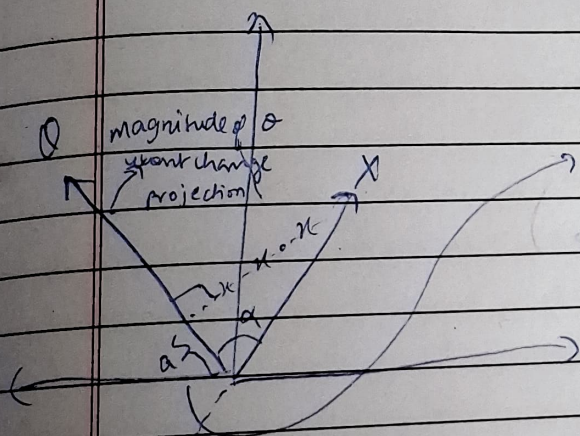 θ
magnitude of θ
wont change
projection
X
x x x
α
a